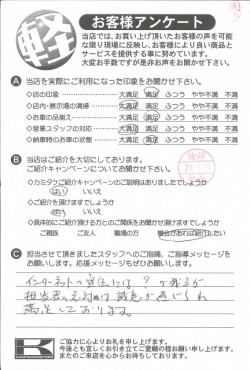 軽
お客様アンケート
当店では、お買い上げ頂いたお客様の声を可能
な限り現場に反映し、お客様により良い商品と
サービスを提供する事に努めています。
大変お手数ですが是非お声をお聞かせ下さい。
A 当店を実際にご利用になった印象をお聞かせ下さい。
◇店の印象 大満足 満足 ふつう やや不満 不満
◇店内・展示場の清掃 大満足 満足 ふつう やや不満 不満
◇お車の品揃え 大満足 満足 ふつう やや不満 不満
◇営業スタッフの対応 大満足 満足 ふつう やや不満 不満
◇納車時のお車の状態 大満足 満足 ふつう やや不満 不満
B 当店はご紹介を大切にしております。
ご紹介キャンペーンについてお聞かせ下さい。
◇カミタケご紹介キャンペーンのご説明はありましたでしょうか
はい いいえ
◇ご紹介を頂けますでしょうか
はい いいえ
◇具体的にご紹介頂ける方とのご関係をお聞かせ頂けますでしょうか
ご親戚 ご友人 職場の方 機会があれば紹介したい
C 担当させて頂きましたスタッフへのご指摘、ご指導メッセージを
お願いします。応援メッセージもぜひお願いします。
インターネットの
担当者の 対応は 誠意が感じられ
満足しております。
K
ご協力に心よりお礼を申し上げます。
今後とも宜しくお引き立てご愛顧の程お願い申し上げます。
またのご来店を心からお待ちしております。